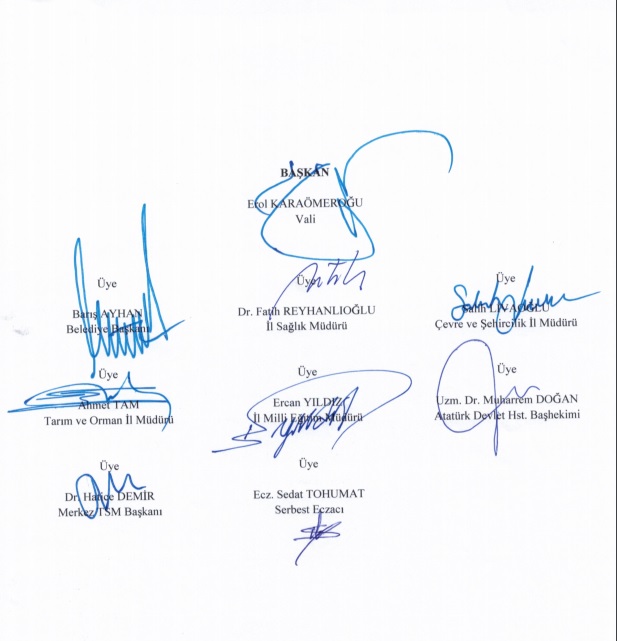 BAŞKAN
Erol KARAÖMEROĞU
Vali
Üye
Barış AYHAN
Belediye Başkanı
Üye
Dr. Fatih REYHANLIOĞLU
İl Sağlık Müdürü
Üye
Çevre ve Şehircilik İl Müdürü
Üye
Ahmet TAM
Tarım ve Orman İl Müdürü
Üye
Ercan YILDIZ
İl Milli Eğitim Müdürü
Üye
Uzm. Dr. Muharrem DOĞAN
Atatürk Devlet Hst. Başhekimi
Üye
Dr. Hatice DEMİR
Merkez TSM Başkanı
Üye
Ecz. Sedat TOHUMAT
Serbest Eczacı